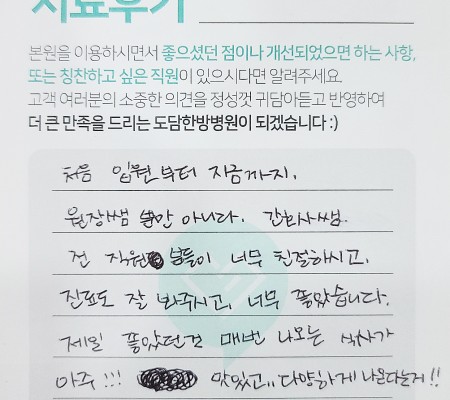 치료후기
본원을 이용하시면서 좋으셨던 점이나 개선되었으면 하는 사항,
또는 칭찬하고 싶은 직원이 있으시다면 알려주세요.
고객 여러분의 소중한 의견을 정성껏 귀담아듣고 반영하여
더 큰 만족을 드리는 도담한방병원이 되겠습니다 :)
처음 입원부터 지금까지.
원장쌤 뿐만 아니다. 간호사쌤.
전 직원 분들이 너무 친절하시고.
진료도 잘 봐주시고, 너무 좋았습니다.
제일 좋았던건 매번 나오는 식사가
아주 !!! 맛있고.. 다양하게 나온다는거 !!